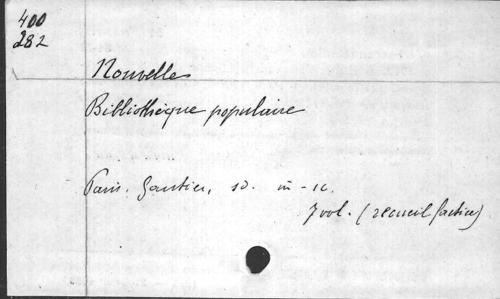 400
282
Nouvelle
Bibliothèque populaire
Paris. Gautier, sd. in-16.
7 vol. (recueil factice)